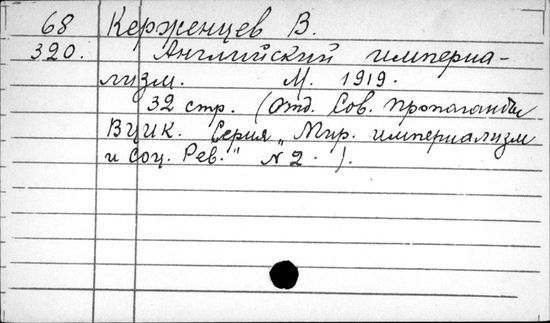 68 Керженцев В.
320. Английский империа-
лизм. М. 1919.
32 стр. (Отд. Сов. пропаганды
ВЦИК. Серия „Мир. империализм
и Соц. Рев." № 2.).